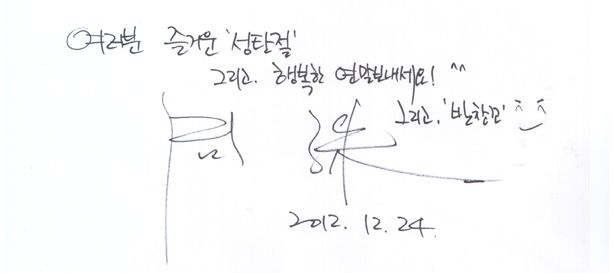 여러분 즐거운 '성탄절'
그리고. 행복한 연말보내세요! ^^
그리고, '반창꼬' ^_^
2012. 12. 24.